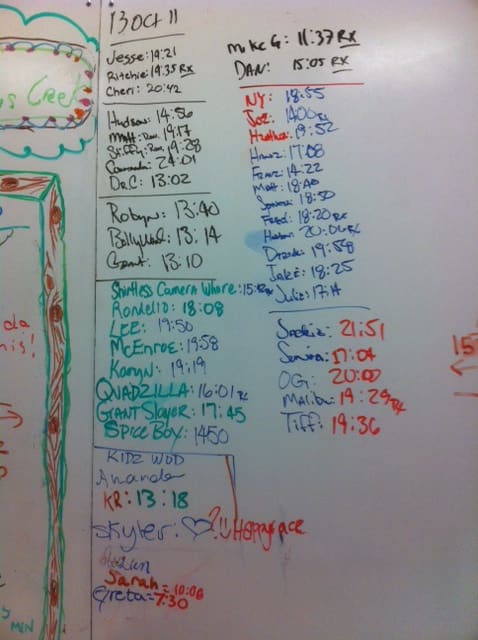 13 OCT 11
Jesse: 19:21
Ritchie: 19:35 RX
Cheri: 20:42
Hudson: 14:56
Matt: 19:17
Stiffy: 19:28
24:01
Dr.C: 13:02
Robyn: 13:40
Bollywood: 13:14
Grant: 13:10
Shirtless Camera Whore: 15: RX
Rondello: 18:08
LEE: 19:50
McEnroe: 19:58
Karyn: 19:19
QUADZILLA: 16:01 RX
GIANT Slayer: 17:45
SPICE Boy: 1450
KIDZ WOD
Amanda
KR: 13:18
Skyler: ♡?!! Happyface
Sarah = 10:06
Greta = 7:30
Mike G: 11:37 RX
DAN: 15:05 RX
NY: 18:55
Joe: 1406 RX
Heather: 19:52
17:08
Franz: 14:22
Matt: 18:40
18:50
18:20 RX
20:06 RX
19:58
Jake: 18:25
Julie: 17:11
21:51
17:04
OG: 20:00
Malibu: 19:29 RX
Tiff: 19:36
Creek
15
MIN